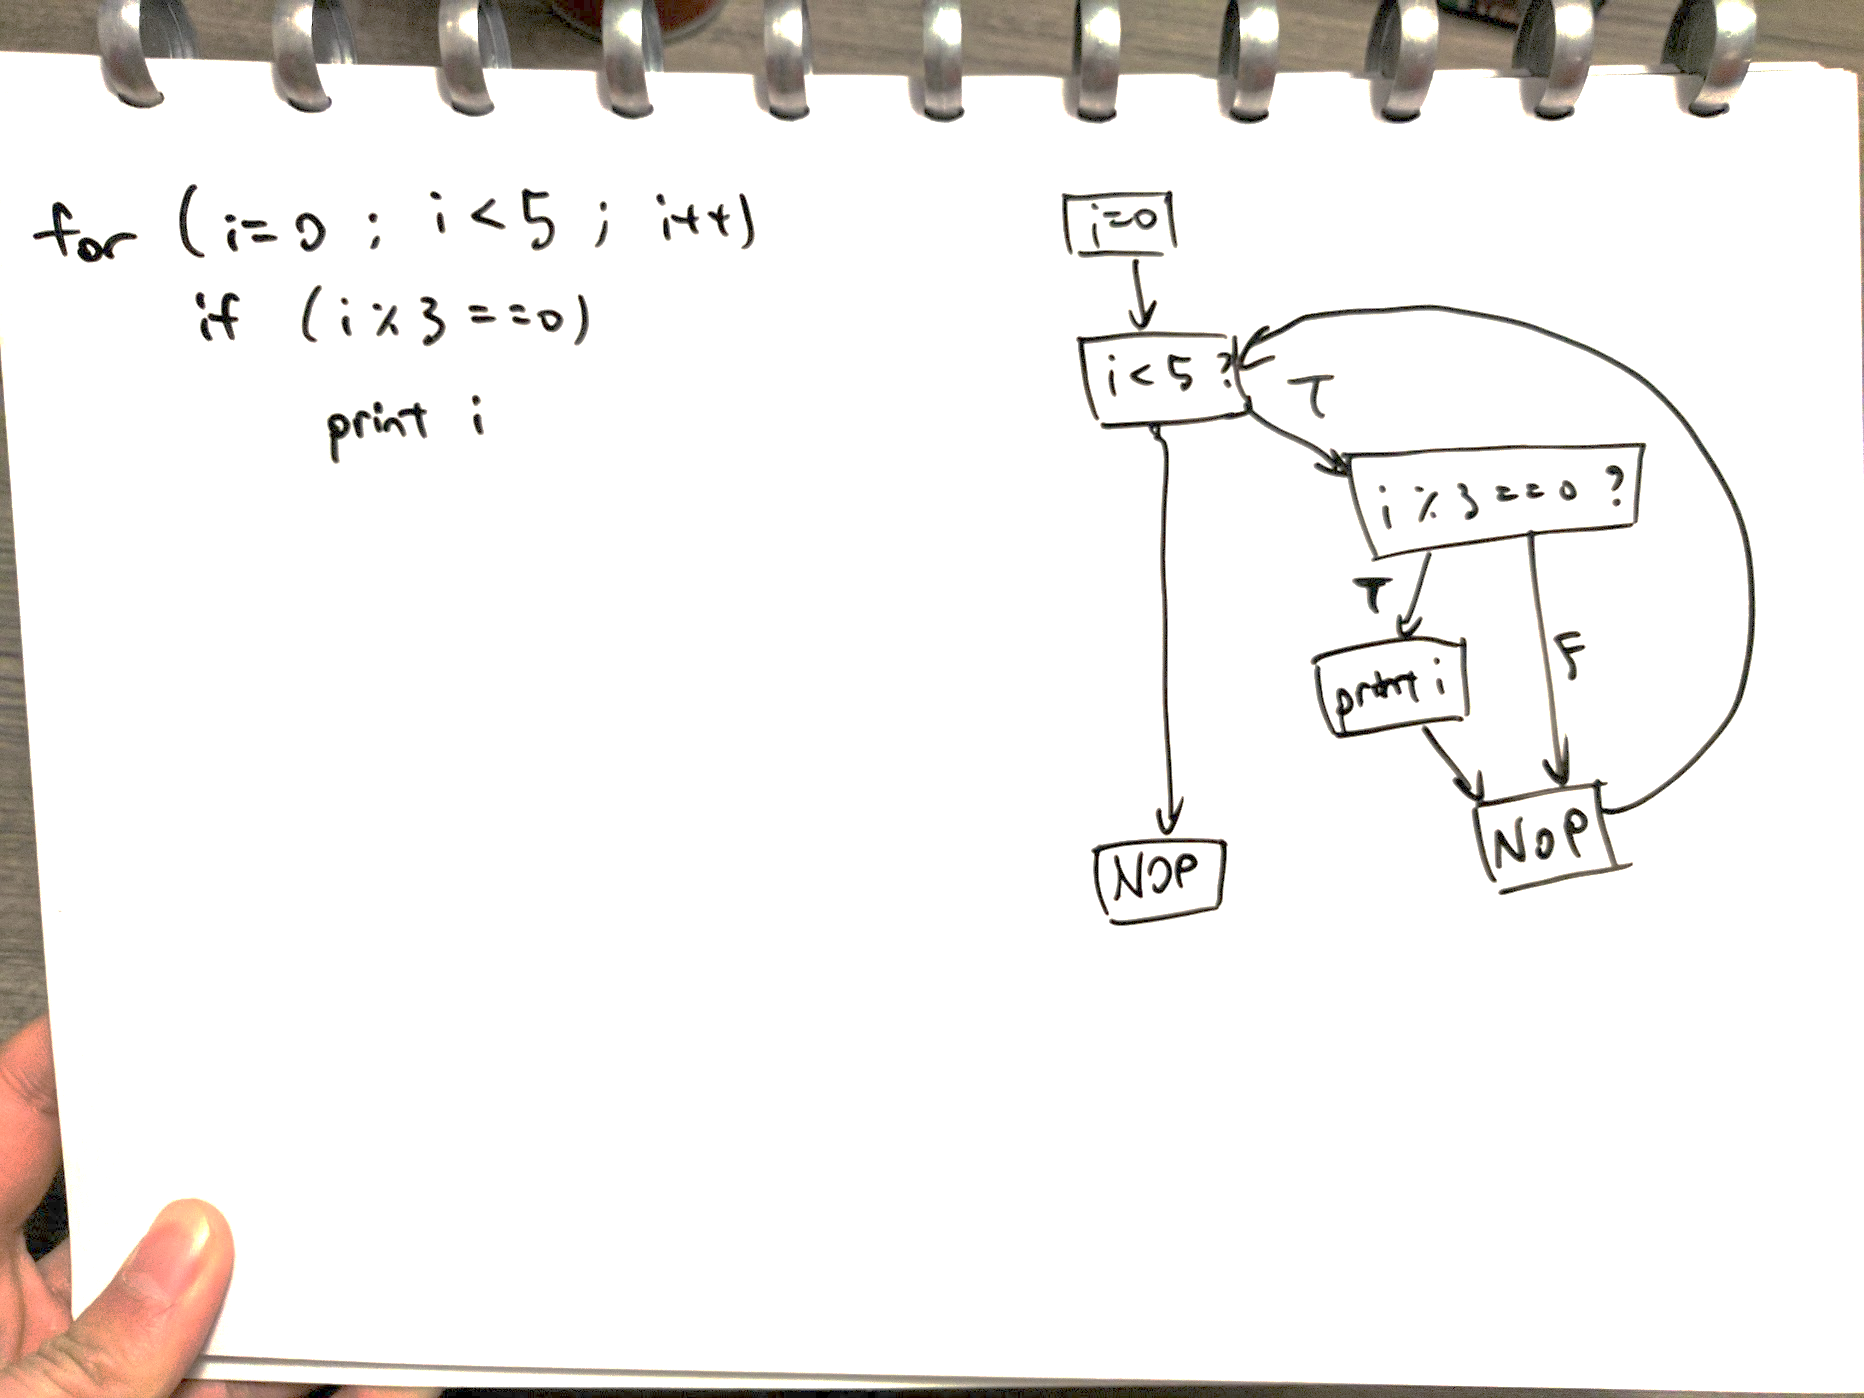 for (i=0 ; i<5 ; i++)
if (i%3==0)
print i
i=0
i<5 ?
T
i%3==0 ?
T
F
print i
NOP
NOP